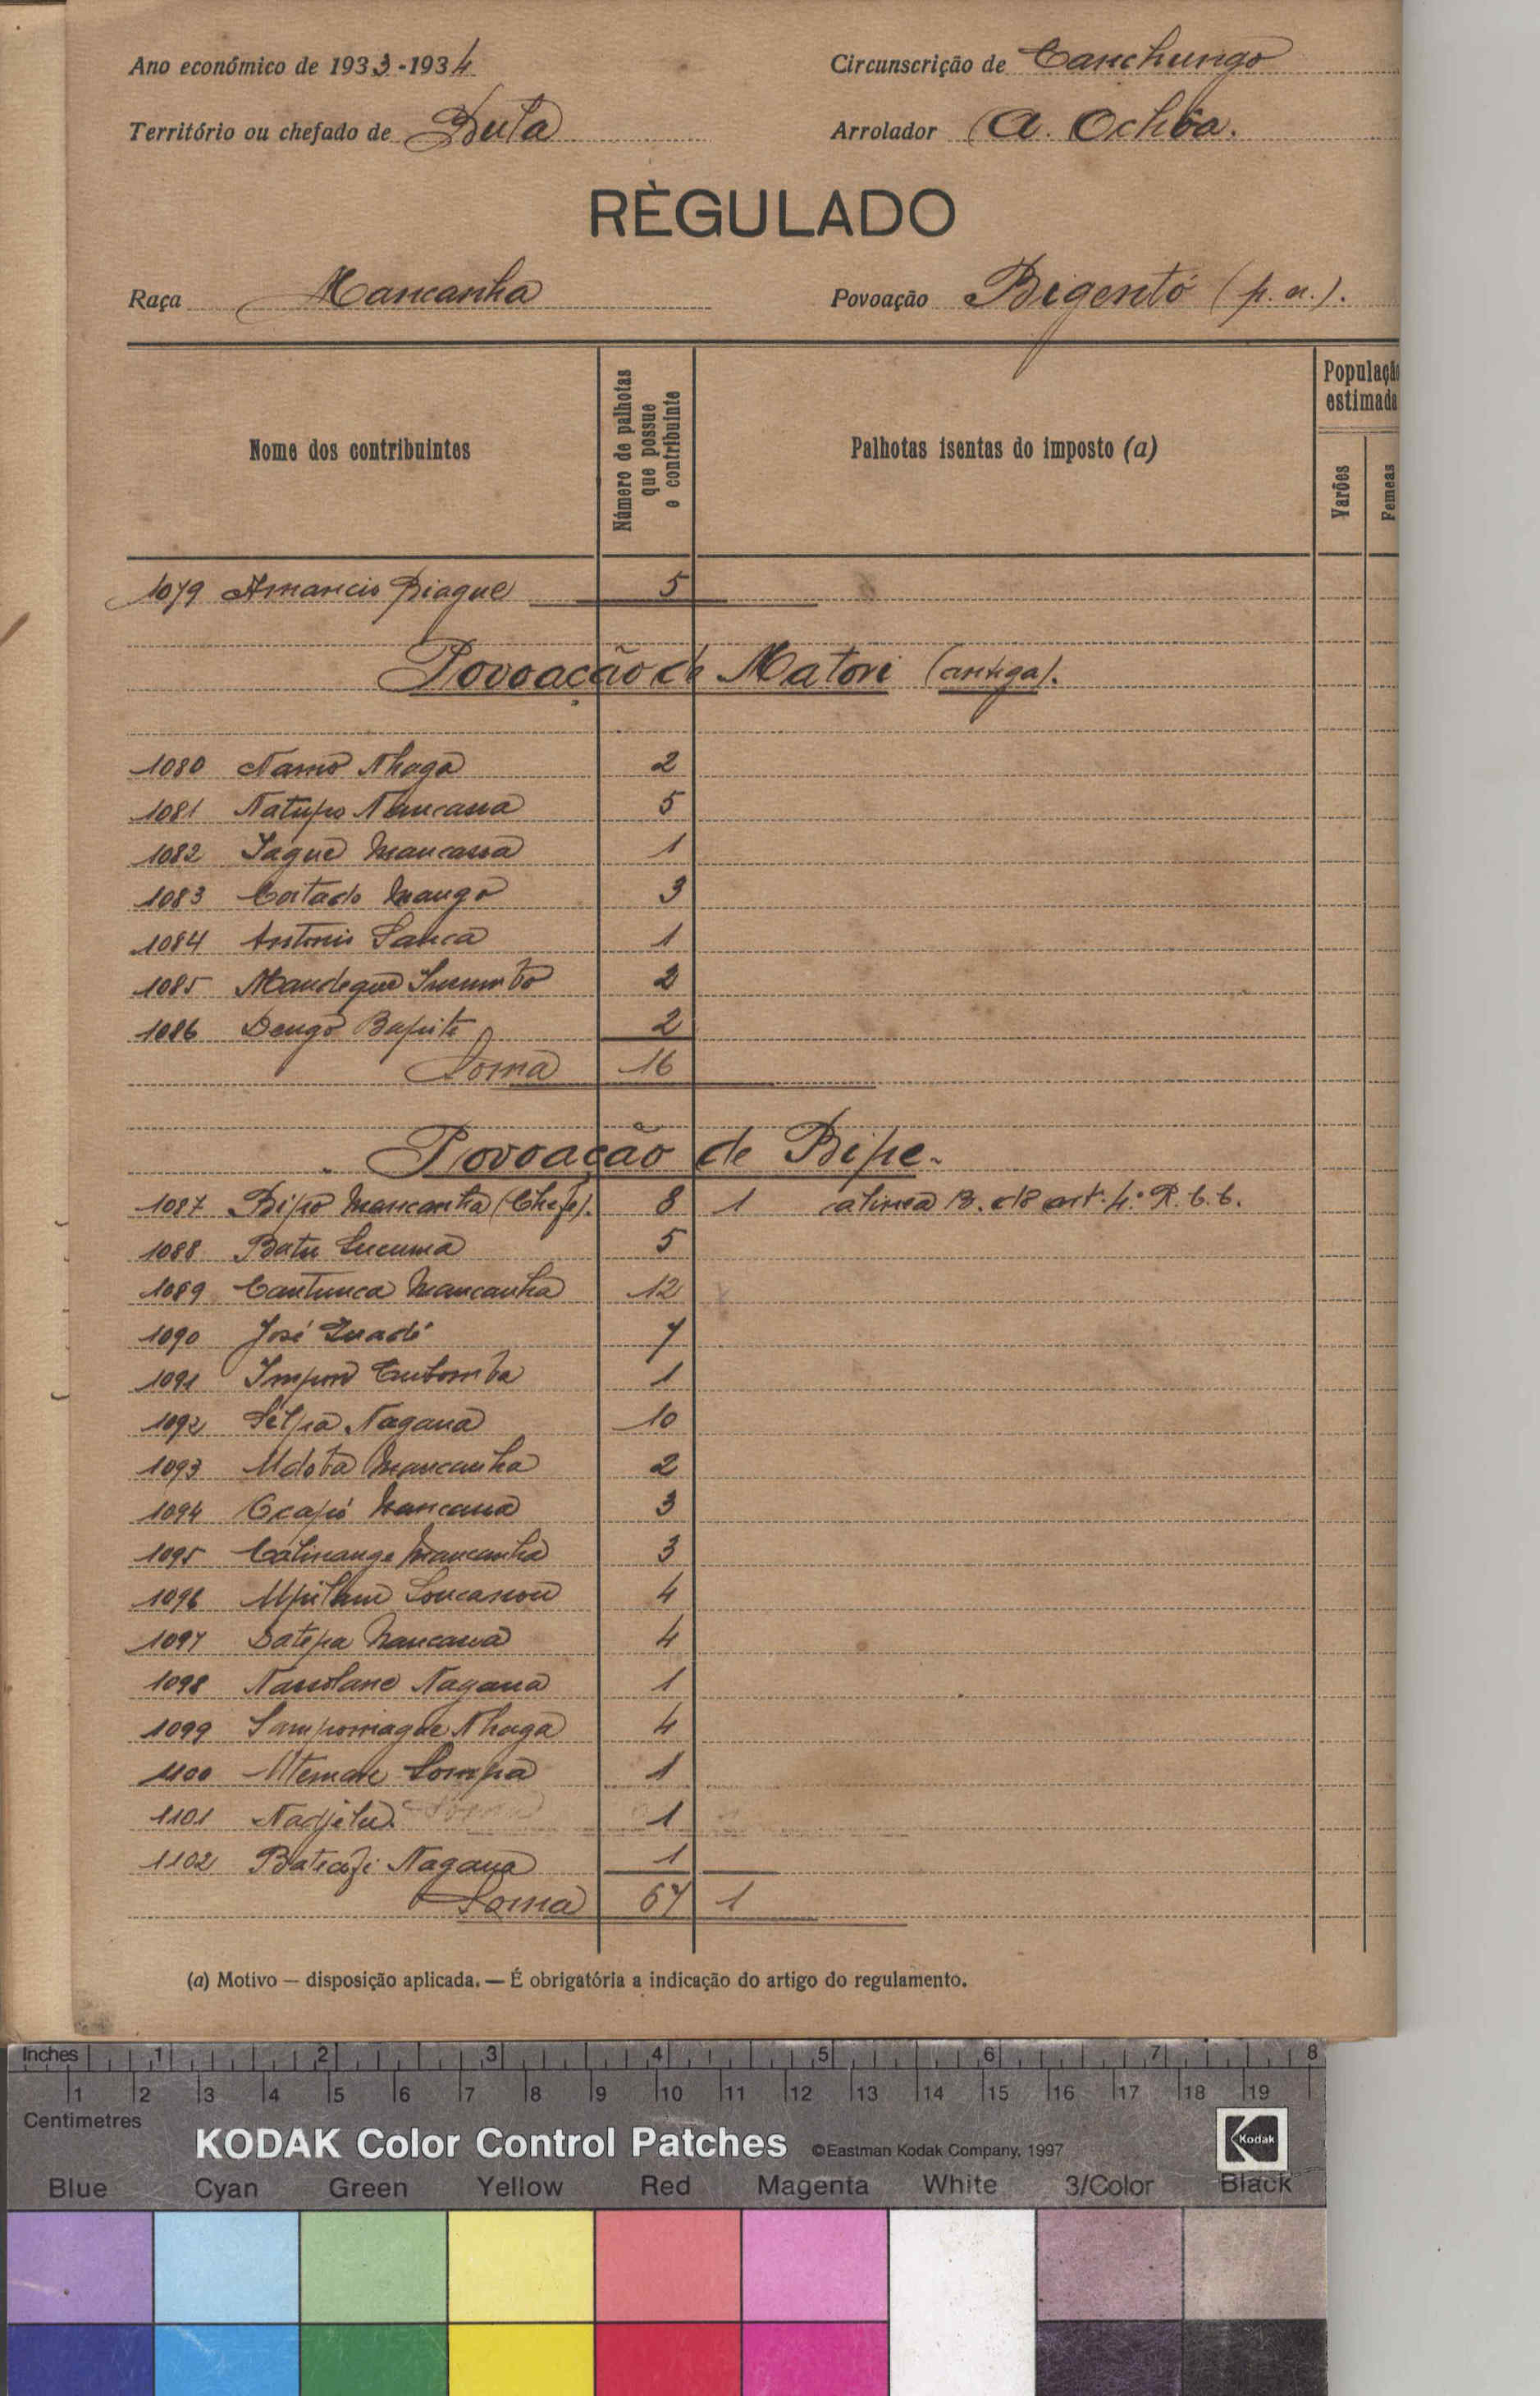 Ano económico de 1933-1934 Circunscrição de Canchungo
Território ou chefado de Bula Arrolador A. Ochôa.
RÈGULADO
Raça Mancanha Povoação Bigentó (p. n.).
Nome dos contribuintes
Número de palhotas que possue o contribuinte
Palhotas isentas do imposto (a)
População estimada
Varões
Femeas
1079 Amancio Biague 5
Povoação de Matori (antiga).
1080 Namõ Nhaga 2
1081 Natupo 5
1082 Jague Mancassa 1
1083 Cortado Mango 3
1084 Antonio Sanca 1
1085 Mandeque 2
1086 Dengo 2
Soma 16
Povoação de Bipe.
1087 Bipo Mancanha (Chefe). 8 1 alinea B. do art.º 4.º R. C. C.
1088 Batu 5
1089 Cantunca Mancanha 12
1090 José 7
1091 1
1092 Nagana 10
1093 Mancanha 2
1094 3
1095 Mancanha 3
1096 4
1097 Datepa 4
1098 Nagana 1
1099 Nhaga 4
1100 Sompa 1
1101 1
1102 Nagana 1
Soma 67 1
(a) Motivo — disposição aplicada. — É obrigatória a indicação do artigo do regulamento.
Inches 1 2 3 4 5 6 7 8
1 2 3 4 5 6 7 8 9 10 11 12 13 14 15 16 17 18 19
Centimetres
KODAK Color Control Patches ©Eastman Kodak Company, 1997 Kodak
Blue Cyan Green Yellow Red Magenta White 3/Color Black